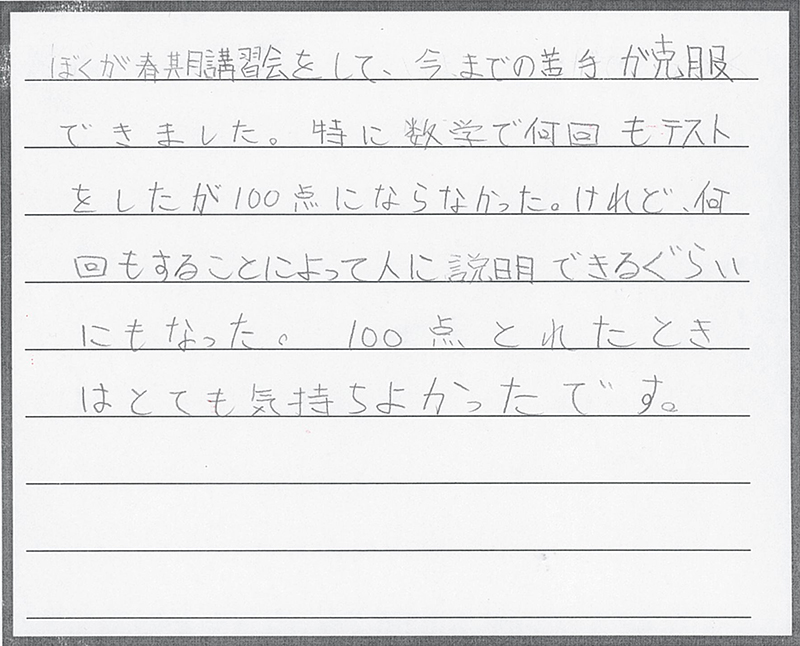 ぼくが春期講習会をして、今までの苦手が克服
できました。特に数学で何回もテスト
をしたが100点にならなかった。けれど、何
回もすることによって人に説明できるぐらい
にもなった。100点とれたとき
はとても気持ちよかったです。